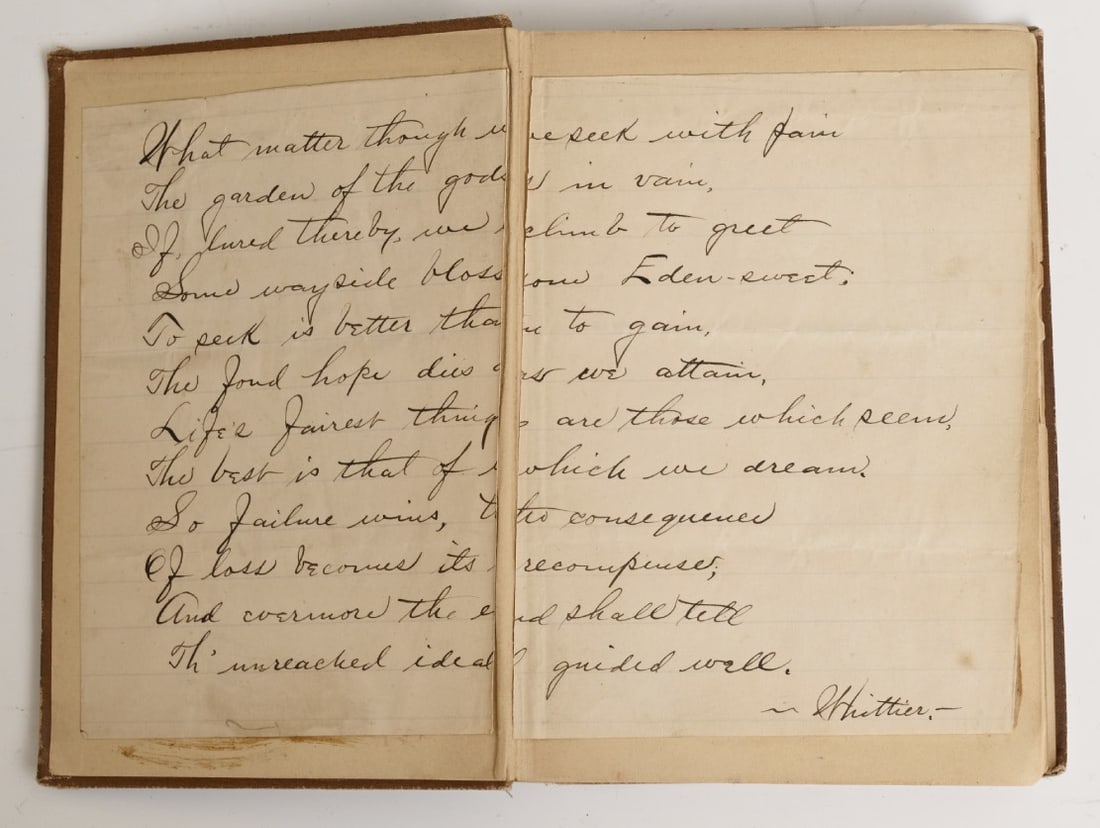 What matter though we seek with pain
The garden of the gods in vain,
If, lured thereby, we climb to greet
Some wayside blossom Eden-sweet:
To seek is better than to gain,
The fond hope dies as we attain,
Life's fairest things are those which seem,
The best is that of which we dream.
So failure wins, the consequence
Of loss becomes its recompense;
And evermore the end shall tell
Th' unreached ideal guided well.
~ Whittier. –